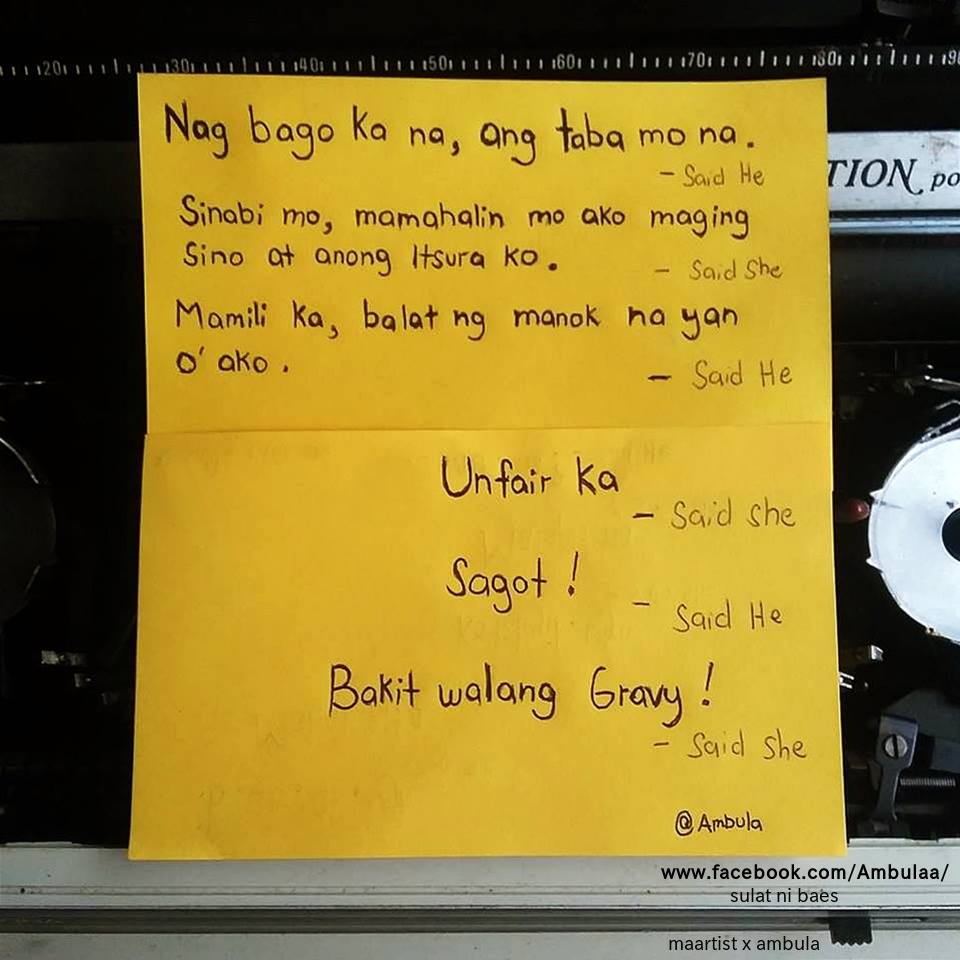 20 30 40 50 60 70 80
Nag bago ka na, ang taba mo na.
- Said He
TION po
Sinabi mo, mamahalin mo ako maging
Sino at anong Itsura ko.
- Said She
Mamili ka, balat ng manok na yan
o' ako.
- Said He
Unfair ka
- Said she
Sagot !
- Said He
Bakit walang Gravy !
- Said she
@Ambula
www.facebook.com/Ambulaa/
sulat ni baes
maartist x ambula